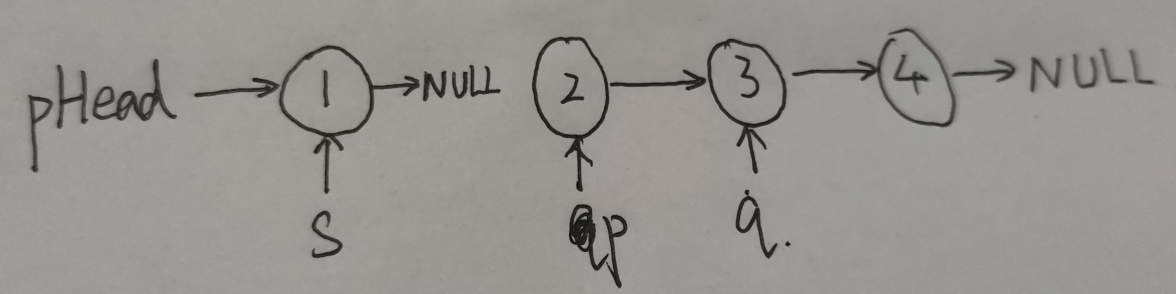 pHead → 1 → NULL 2 → 3 → 4 → NULL
s p q.